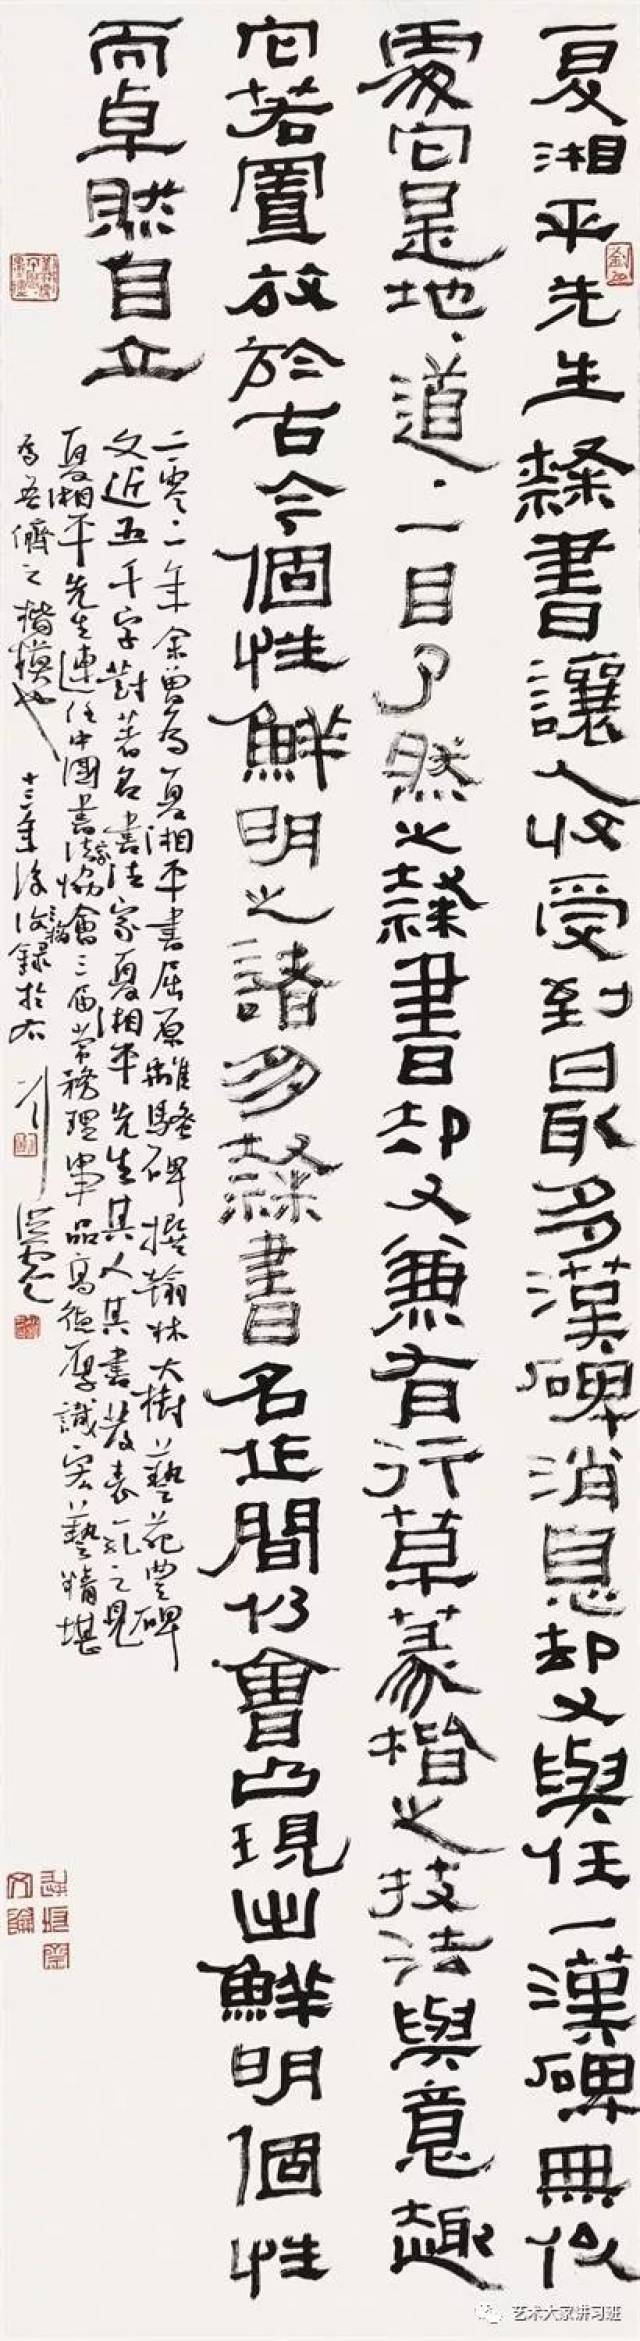 夏湘平先生隸書讓人收受到最多漢碑消息却又與任一漢碑無似
處它是地道一目了然之隸書却又兼有行草篆楷之技法與意趣
它若置放於古今個性鮮明之諸多隸書名作間仍會凸現出鮮明個性
而卓然自立
二零一年余曾為夏湘平書屈原離騷碑撰翰林大樹藝苑豐碑
文近五千字對著名書法家夏湘平先生其人其書發表之見
夏湘平先生連任中國書法家協會三屆常務理事品高德厚識宏藝精堪
為吾儕之楷模也 十三年後復錄於右 劉
艺术大家讲习班